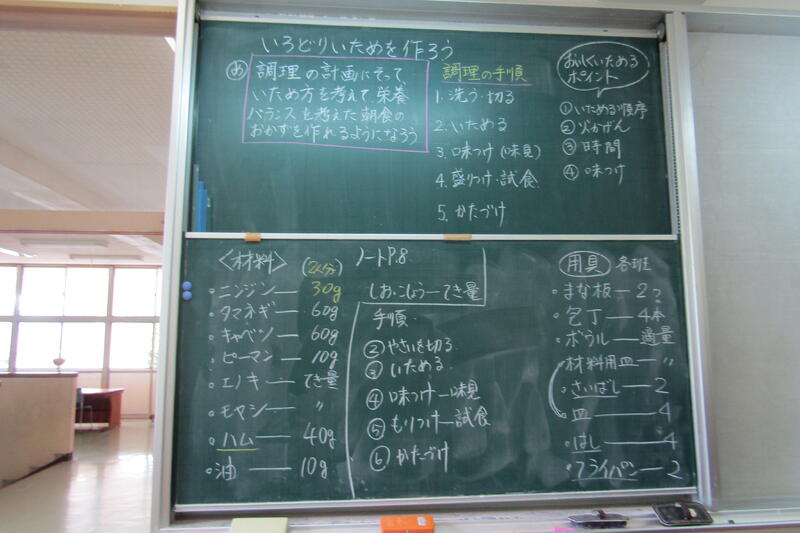 いろどりいためを作ろう
め 調理の計画にそって、
いため方を考えて、栄養
バランスを考えた朝食の
おかずを作れるようになろう
調理の手順
1. 洗う・切る
2. いためる
3. 味つけ(味見)
4. 盛りつけ・試食
5. かたづけ
おいしくいためる
ポイント
①いためる順序
②火かげん
③時間
④味つけ
<材料> (2人分)
・ニンジン― 30g
・タマネギ― 60g
・キャベツ― 60g
・ピーマン― 10g
・エノキ― てき量
・モヤシ― 〃
・ハム― 40g
・油― 10g
ノートP.8
しお・こしょう―てき量
手順
②やさいを切る
③いためる
④味つけ―味見
⑤もりつけ―試食
⑥かたづけ
用具 各班
・まな板―2つ
・包丁―4本
・ボウル―適量
・材料用皿―〃
・さいばし―2
・皿―4
・はし―4
・フライパン―2